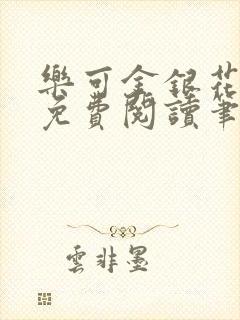 樂可金銀花
免費閱讀筆
雲非墨